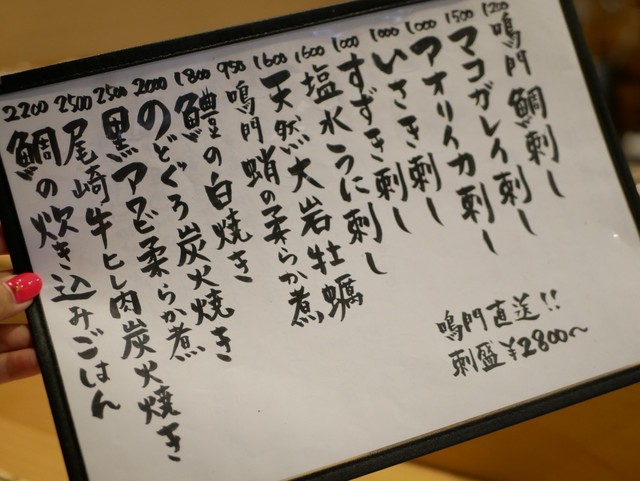 1200 鳴門鯛刺し
1500 マコガレイ刺し
1000 アオリイカ刺し
1000 いさき刺し
1000 すずき刺し
1600 塩水うに刺し
1600 天然大岩牡蠣
950 鳴門蛸の柔らか煮
1800 鱧の白焼き
2000 のどぐろ炭火焼き
2500 黒アワビ柔らか煮
2500 尾崎牛ヒレ肉炭火焼き
2200 鯛の炊き込みごはん
鳴門直送!!
刺盛¥2800〜